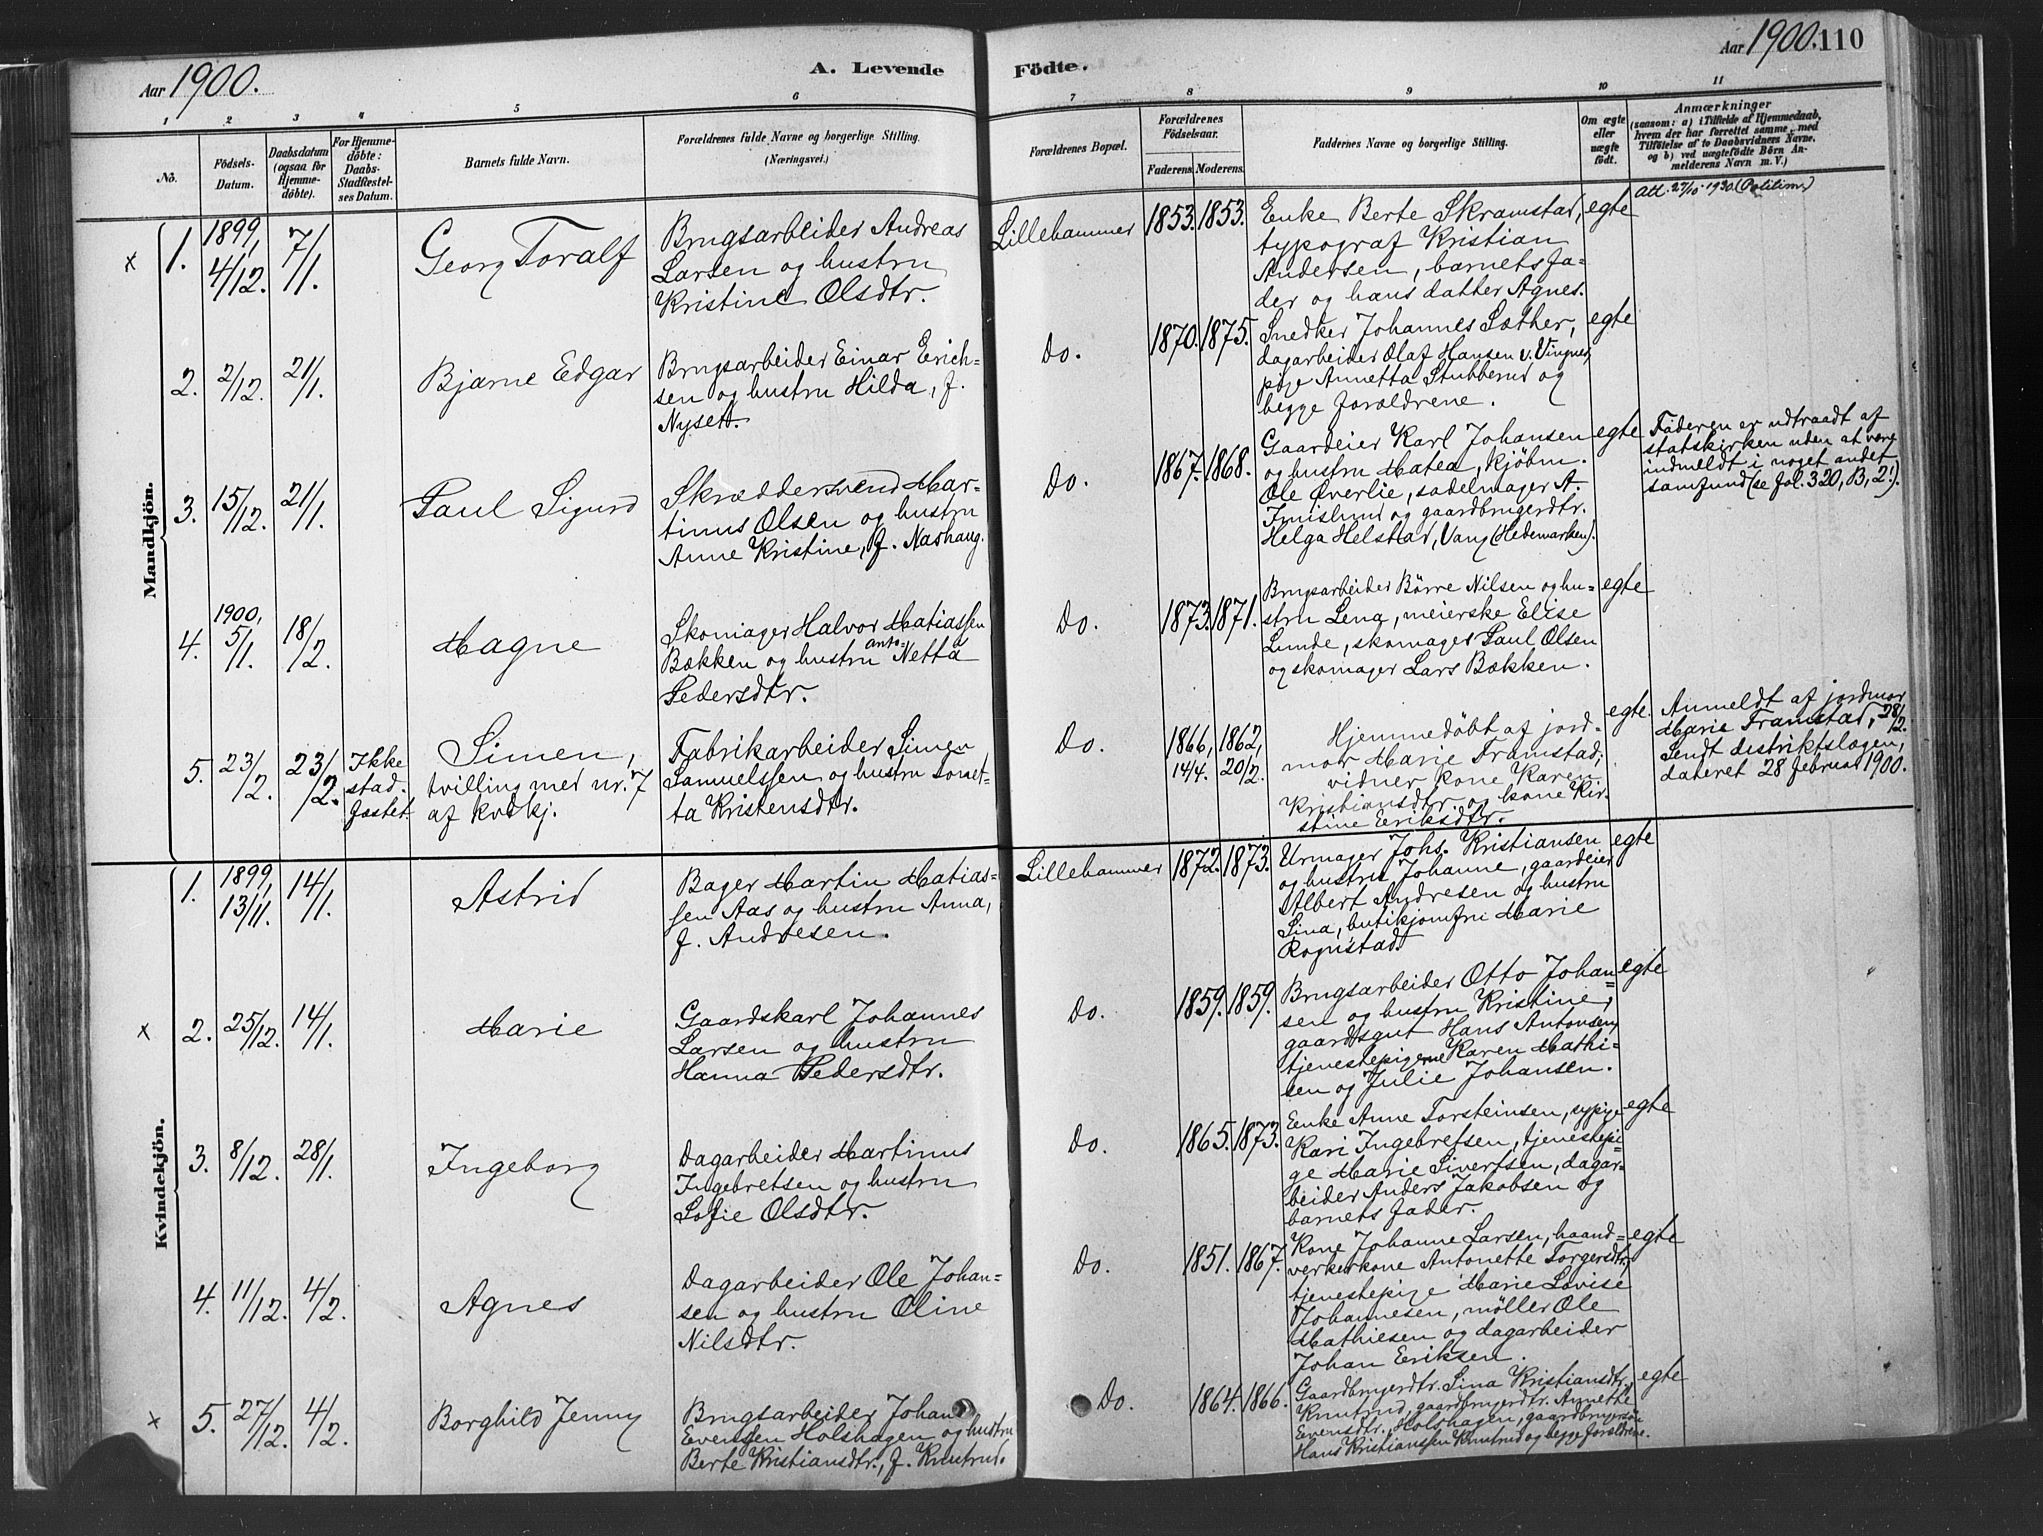 Aar 1900.
A. Levende
Födte.
Aar 1900. 110
1 2 3 4 5 6 7 8 9 10 11
No.
Födsels-
Datum.
Daabsdatum
(ogsaa for
Hjemme-
döbte).
For Hjemme-
döbte:
Daabs-
Stadfæstel-
ses Datum.
Barnets fulde Navn.
Forældrenes fulde Navne og borgerlige Stilling.
(Næringsvei.)
Forældrenes Bopæl.
Forældrenes
Födselsaar.
Faderens. Moderens.
Faddernes Navne og borgerlige Stilling.
Om ægte
eller
uægte
født.
Anmærkninger
(saasom: a) i Tilfælde af Hjemmedaab,
hvem der har forrettet samme, med
Tilföielse af to Daabsvidners Navne,
og b) ved uægtefödte Börn An-
melderens Navn m. V.)
Mandkjön.
x 1.
1899,
4/12.
7/1.
Georg Toralf
Brugsarbeider Andreas
Larsen og hustru
Kristine Olsdtr.
Lillehammer
1853. 1853.
Enke Berte Skramstad,
typograf Kristian
Andersen, barnets fa-
der og hans datter Agnes.
egte
Att. 27/10 1930. (Politim.)
2.
2/12.
21/1.
Bjarne Edgar
Brugsarbeider Einar Erich-
sen og hustru Hilda, f.
Nyset.
Do.
1870. 1875.
Snedker Johannes Sæther,
dagarbeider Olaf Hansen v. Vingnes,
pige Annetta Stubberud og
begge forældrene.
egte
3.
15/12.
21/1.
Paul Sigurd
Skræddersvend Mar-
tinus Olsen og hustru
Anne Kristine, f. Nashaug.
Do.
1867. 1868.
Gaardeier Karl Johansen
og hustru Matea, kjøbm.
Ole Øverlie, sadelmager A.
Fruislund og gaardbrugerdtr.
Helga Helstad, Vang (Hedemarken).
egte
Faderen er udtraadt af
statskirken uden at være
indmeldt i noget andet
samfund (se fol. 320, B, 2!).
4.
1900,
5/1.
18/2.
Magne
Skomager Halvor Matiassen
Bækken og hustru Netta
anto-
Pedersdtr.
Do.
1873. 1871.
Brugsarbeider Børre Nilsen og hu-
stru Lena, meierske Elise
Lunde, skomager Paul Olsen
og skomager Lars Bækken.
egte
5.
23/2.
23/2.
Ikke
stad-
fæstet.
Simen,
tvilling med nr. 7
af kvdkj.
Fabrikarbeider Simen
Samuelssen og hustru Tomet-
ta Kristensdtr.
Do.
1866, 1862,
14/4. 20/2.
Hjemmedøbt af jord-
mor Marie Framstad;
vidner kone Karen
Kristiansdtr. og kone Kir-
stine Eriksdtr.
egte.
Anmeldt af jordmor
Marie Framstad, 28/2.
Sendt distriktslægen,
dateret 28 februar 1900.
Kvindekjön.
1.
1899,
13/11.
14/1.
Astrid
Bager Martin Matias-
sen Aas og hustru Anna,
f. Andresen.
Lillehammer
1872. 1873.
Urmager Johs. Kristiansen
og hustru Johanne, gaardeier
Albert Andresen og hustru
Lina, butikjomfru Marie
Rognstad.
egte
x 2.
25/12.
14/1.
Marie
Gaardskarl Johannes
Larsen og hustru
Hanna Pedersdtr.
Do.
1859. 1859.
Brugsarbeider Otto Johan-
sen og hustru Kristine,
gaardsgut Hans Antonsen,
tjenestepigerne Karen Mathi-
sen og Julie Johansen.
egte
3.
8/12.
28/1.
Ingeborg
Dagarbeider Martinus
Ingebretsen og hustru
Sofie Olsdtr.
Do.
1865. 1873.
Enke Anne Torsteinsen, sypige
Kari Ingebretsen, tjenestepi-
ge Marie Sivertsen, dagar-
beider Anders Jakobsen og
barnets fader.
egte
4.
11/12.
4/2.
Agnes
Dagarbeider Ole Johan-
sen og hustru Oline
Nilsdtr.
Do.
1851. 1867.
Kone Johanne Larsen, haand-
verkerkone Antonette Torgersdtr.,
tjenestepige Marie Lovise
Johannesen, møller Ole
Mathiesen og dagarbeider
Johan Eriksen.
egte
x 5.
27/12.
4/2.
Borghild Jenny
Brugsarbeider Johan
Evensen Holshagen og hustru
Berte Kristiansdtr., f. Knutrud.
Do.
1864. 1866.
Gaardbrugerdtr. Lina Kristiansdtr.
Knutrud, gaardbrugerdtr. Annette
Evensdtr. Holshagen, gaardbrugersøn
Hans Kristianssen Knutrud og begge forældrene.
egte